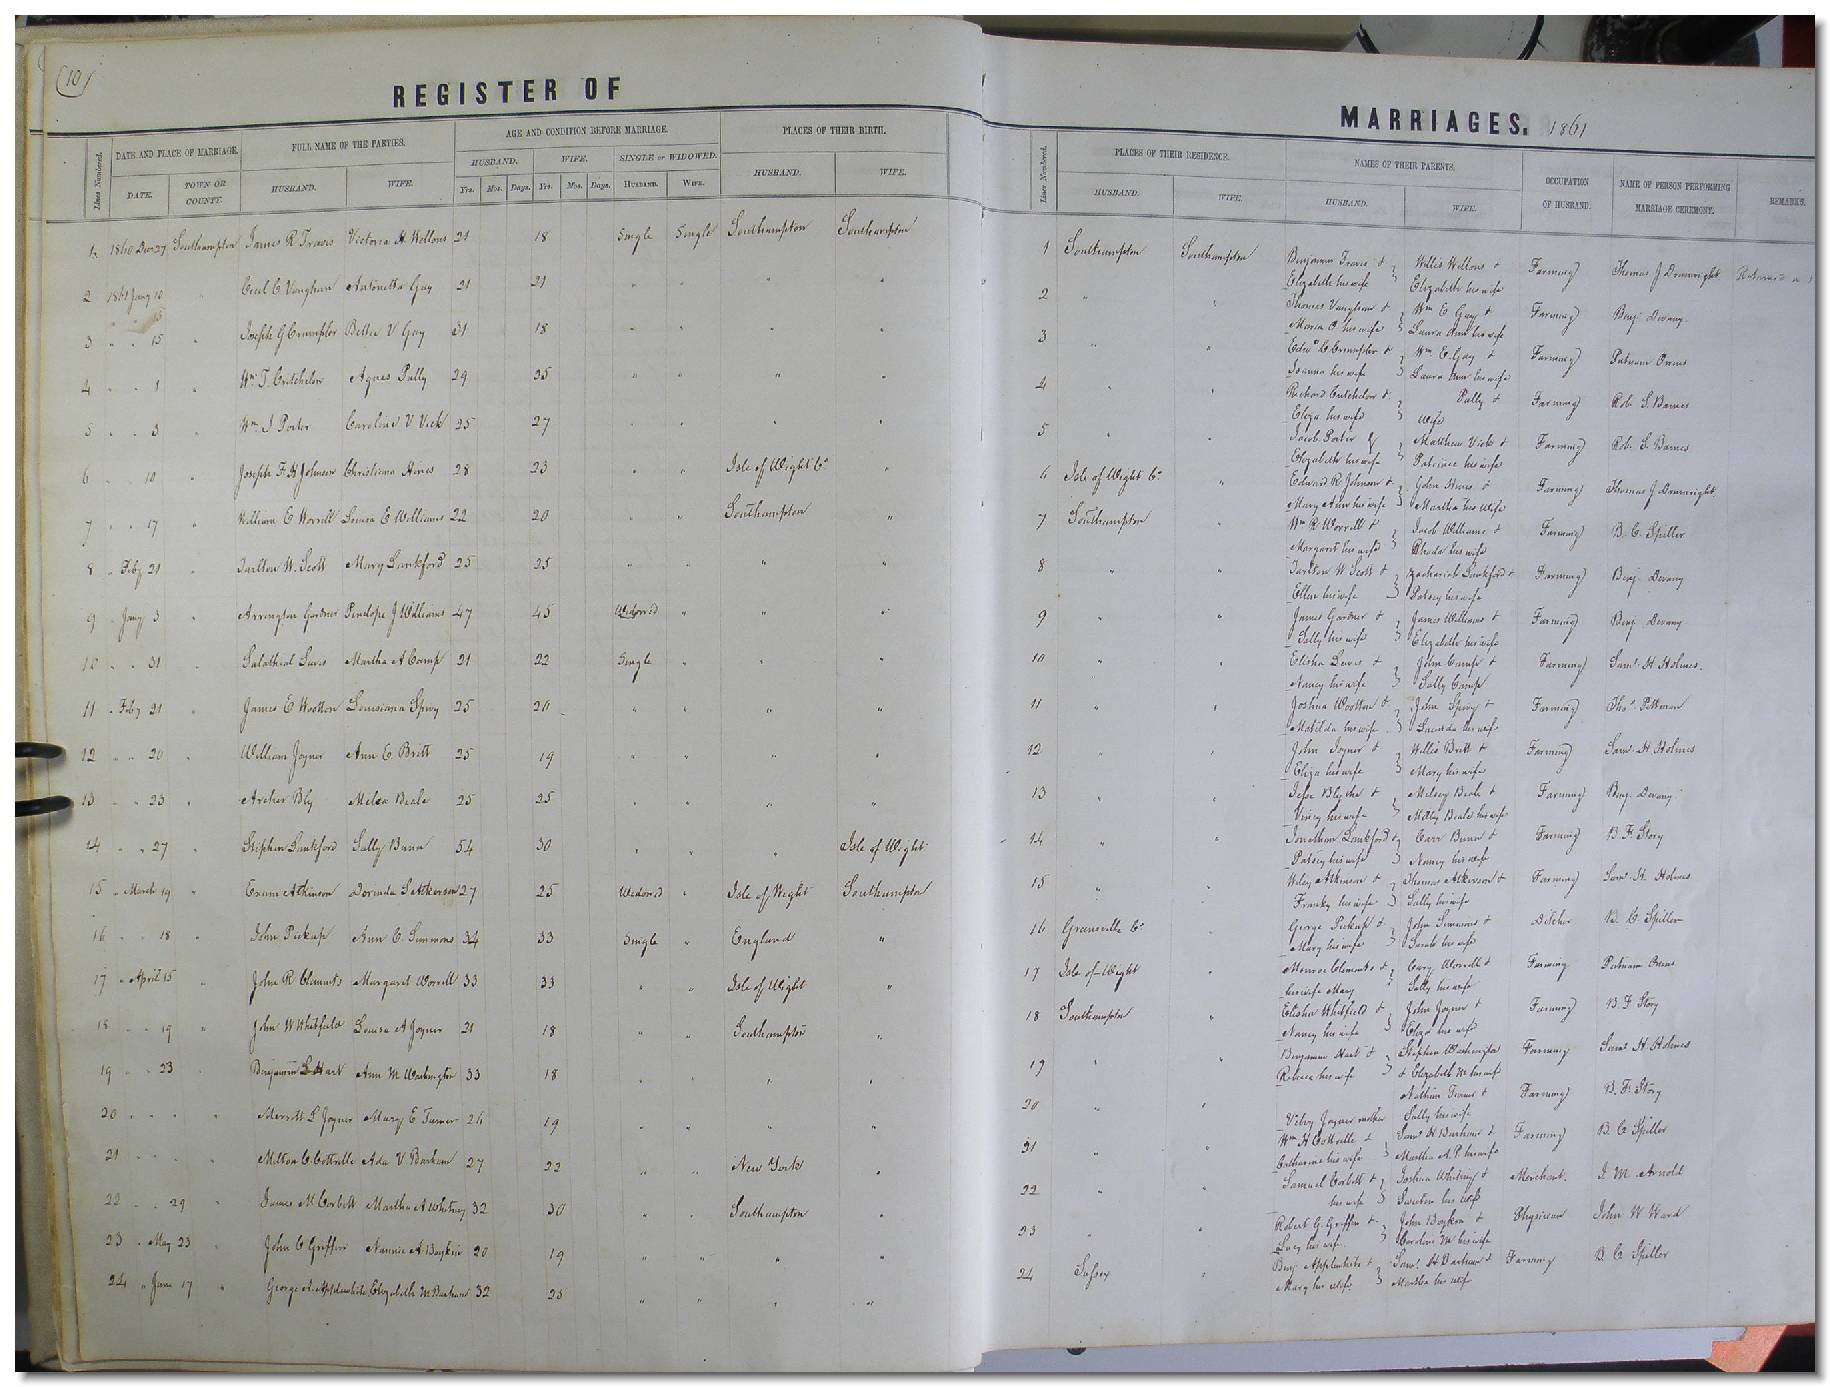 (10)
REGISTER OF
Lines Numbered.
DATE AND PLACE OF MARRIAGE.
FULL NAME OF THE PARTIES.
AGE AND CONDITION BEFORE MARRIAGE.
PLACES OF THEIR BIRTH.
DATE.
TOWN OR COUNTY.
HUSBAND.
WIFE.
HUSBAND.
WIFE.
SINGLE or WIDOWED.
HUSBAND.
WIFE.
Yrs. Mos. Days. Yrs. Mos. Days. HUSBAND. WIFE.
1 1860 Dec 27 Southampton James R Travis Victoria H. 21 18 Single Single Southampton Southampton
2 1861 Jany 10 " Cecil C Vaughan Antonetta Gay 21 21 " " " "
3 " " 15 " Joseph G Crumpler Bettie V Gay 31 18 " " " "
4 " " 1 " Wm T. Critchelow Agnes Pully 29 35 " " " "
5 " " 3 " Wm J Porter Caroline V Vick 25 27 " " " "
6 " " 10 " Joseph F. H Johnson Christiana Hines 28 23 " " Isle of Wight Co "
7 " " 17 " William E Worrell Louisa E Williams 22 20 " " Southampton "
8 " Feby 21 " Tarlton W. Scott Mary Lankford 25 25 " " " "
9 " Jany 3 " Arrington Gardner Penelope J Williams 47 45 Widowed " " "
10 " " 31 " Salathial Martha A Camp 21 22 Single " " "
11 " Feby 21 " James E Wootton Louisiana Spivy 25 20 " " " "
12 " " 20 " William Joyner Ann E. Britt 25 19 " " " "
13 " " 23 " Archer Bly Beale 25 25 " " " "
14 " " 27 " Stephen Lankford Sally Bunn 54 30 " " " Isle of Wight
15 " March 19 " Atkinson Dorinda S Atkerson 27 25 Widowed " Isle of Wight Southampton
16 " " 18 " John Pickup Ann C. Simmons 34 33 Single " England "
17 " April 15 " John R Clements Margaret Worrell 33 33 " " Isle of Wight "
18 " " 19 " John W Whitfield Louisa A Joyner 21 18 " " Southampton "
19 " " 23 " Benjamin Hart Ann M Washington 33 18 " " " "
20 " " " " Merrett L Joyner Mary E Turner 26 19 " " " "
21 " " " " Milton C Cottrille Ada V Barham 27 22 " " New York "
22 " " 29 " James M Corbett Martha A Whitney 32 30 " " Southampton "
23 " May 23 " John C Griffin Nannie A Boykin 20 19 " " " "
24 " June 17 " George A. Applewhite Elizabeth M Barham 32 25 " " " "
MARRIAGES. 1861
Lines Numbered.
PLACES OF THEIR RESIDENCE.
NAMES OF THEIR PARENTS.
OCCUPATION OF HUSBAND.
NAME OF PERSON PERFORMING MARRIAGE CEREMONY.
REMARKS.
HUSBAND.
WIFE.
HUSBAND.
WIFE.
1 Southampton Southampton Benjamin Travis & Willis & Farming Thomas J Drewright
Elizabeth his wife Elizabeth his wife
2 " " Thomas Vaughan & Wm E Gay & Farming Benj. Devany
Maria his wife Laura Ann his wife
3 " " Edwd Crumpler & Wm E. Gay & Farming Putnam Owens
Joanna his wife Laura Ann his wife
4 " " Richard Critchelow & Pully & Farming Rob. S. Barnes
Eliza his wife Wife
5 " " Jacob Porter & Matthew Vick & Farming Rob. S. Barnes
Elizabeth his wife Patience his wife
6 Isle of Wight Co " Edward R. Johnson & John Hines & Farming Thomas J Drewright
Mary Ann his wife Martha his wife
7 Southampton " Wm R Worrell & Jacob Williams & Farming B. C. Spiller
Margaret his wife Rhoda his wife
8 " " Tarlton W Scott & Zachariah Lankford & Farming Benj. Devany
Ellen his wife Patsey his wife
9 " " James Gardner & James Williams & Farming Benj. Devany
Sally his wife Elizabeth his wife
10 " " Elisha & John Camp & Farming Saml H Holmes.
Nancy his wife Sally Camp
11 " " Joshua Wootton & John Spivy & Farming Thos. Pittman
Matilda his wife Lucinda his wife
12 " " John Joyner & Willis Britt & Farming Saml H Holmes
Eliza his wife Mary his wife
13 " " Jesse & Beale & Farming Benj. Devany
his wife Milly Beale his wife
14 " " Jonathan Lankford & Carr Bunn & Farming B. F. Story
Patsey his wife Nancy his wife
15 " " Wiley Atkinson & Thomas Atkerson & Farming Saml H. Holmes
Franky his wife Sally his wife
16 Granville Co " George Pickup & John Simmons & Ditcher B. C Spiller
Mary his wife Sarah his wife
17 Isle of Wight " Monroe Clements & Cary Worrell & Farming Putnam Owens
his wife Mary Sally his wife
18 Southampton " Elisha Whitfield & John Joyner & Farming B. F Story
Nancy his wife Eliza his wife
19 " " Benjamin Hart & Stephen Washington Farming Saml H Holmes
Rebecca his wife & Elizabeth M his wife
20 " " Nathan Turner & Farming B. F. Story
Joyner mother Sally his wife
21 " " Wm H Cottrille & Saml H Barham & Farming B. C Spiller
Catharine his wife Martha A. P. his wife
22 " " Samuel Corbett & Joshua Whitney & Merchant. J. M. Arnold
his wife his wife
23 " " Robert G. Griffin & John Boykin & Physician John W Ward
Lucy his wife Caroline M his wife
24 Sussex " Benj. Applewhite & Saml H Barham & Farming B. C Spiller
Mary his wife. Martha his wife